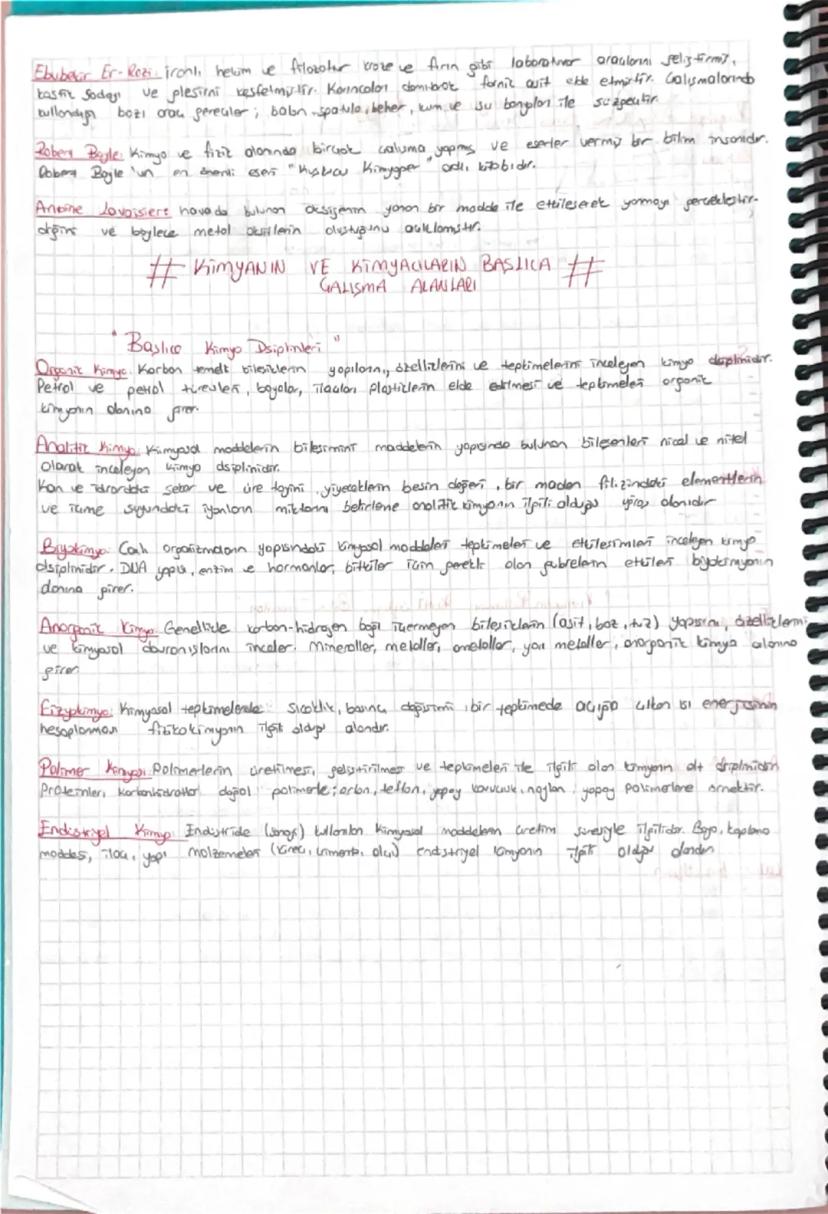 Ebubekir Er-Razi: İranlı, hekim ve filozofur kroze ve fırın gibi laboratuvar araçlarını geliştirmiş,
kostik sodayı ve gliserini keşfetmiştir. Karıncaları damıtarak formik asit elde etmiştir. Çalışmalarında
kullandığı bazı araç gereçler; balon, spatula, beher, kum ve su banyoları ile süzgeçtir.
Robert Boyle: Kimya ve fizik alanında birçok çalışma yapmış ve eserler vermiş bir bilim insanıdır.
Robert Boyle'un en önemli eseri "Kuşkucu Kimyager" adlı kitabıdır.
Antoine Lavoissiere havada bulunan oksijenin yanan bir madde ile etkileşerek yanmayı gerçekleştir-
diğini ve böylece metal oksitlerin oluştuğunu açıklamıştır.
# KİMYANIN VE KİMYACILARIN BAŞLICA #
ÇALIŞMA ALANLARI
"Başlıca Kimya Dsiplinleri"
Organik Kimya: Karbon temelli bileşiklerin yapılarını, özelliklerini ve tepkimelerini inceleyen kimya dsiplinidir.
Petrol ve petrol türevleri, boyalar, ilaçları plastiklerin elde edilmesi ve tepkimeleri organik
kimyanın alanına girer.
Analitik Kimya: Kimyasal maddelerin bileşimini maddelerin yapısında bulunan bileşenleri nicel ve nitel
olarak inceleyen kimya dsiplinidir.
Kan ve idrardaki şeker ve üre tayini, yiyeceklerin besin değeri, bir maden filizindeki elementlerin
ve içme suyundaki iyonların miktarını belirleme analitik kimyanın ilgili olduğu uğraş alanıdır
Biyokimya: Canlı organizmaların yapısındaki kimyasal maddeleri tepkimeleri ve etkileşimleri inceleyen kimya
dsiplinidir. DNA yapısı, enzim ve hormonlar, bitkiler için gerekli olan gübrelerin etkileri biyokimyanın
alanına girer.
Anorganik Kimya Genellikle karbon-hidrojen bağı içermeyen bileşiklerin (asit, baz, tuz) yapısını, özelliklerini
ve kimyasal davranışlarını inceler. Mineraller, metaller, ametaller, yarı metaller, anorganik kimya alanına
girer
Fizikokimya: Kimyasal tepkimelerde sıcaklık, basınç değişimi, bir tepkimede açığa çıkan ısı enerjisinin
hesaplanması fizikokimyanın ilgili olduğu alandır.
Polimer Kimyası: Polimerlerin üretilmesi, geliştirilmesi ve tepkimeleri ile ilgili olan kimyanın alt dsiplinidir
Proteinler, karbonhidratlar doğal polimerle; orlon, teflon, yapay kauçuk, naylon, yapay polimerlere örnektir.
Endüstriyel Kimya: Endüstride (sanayi) kullanılan kimyasal maddelerin üretim süreciyle ilgilidir. Boya, kaplama
maddesi, ilaç, yapı malzemeleri (kireç, çimento, alçı) endüstriyel kimyanın ilgili olduğu alandır